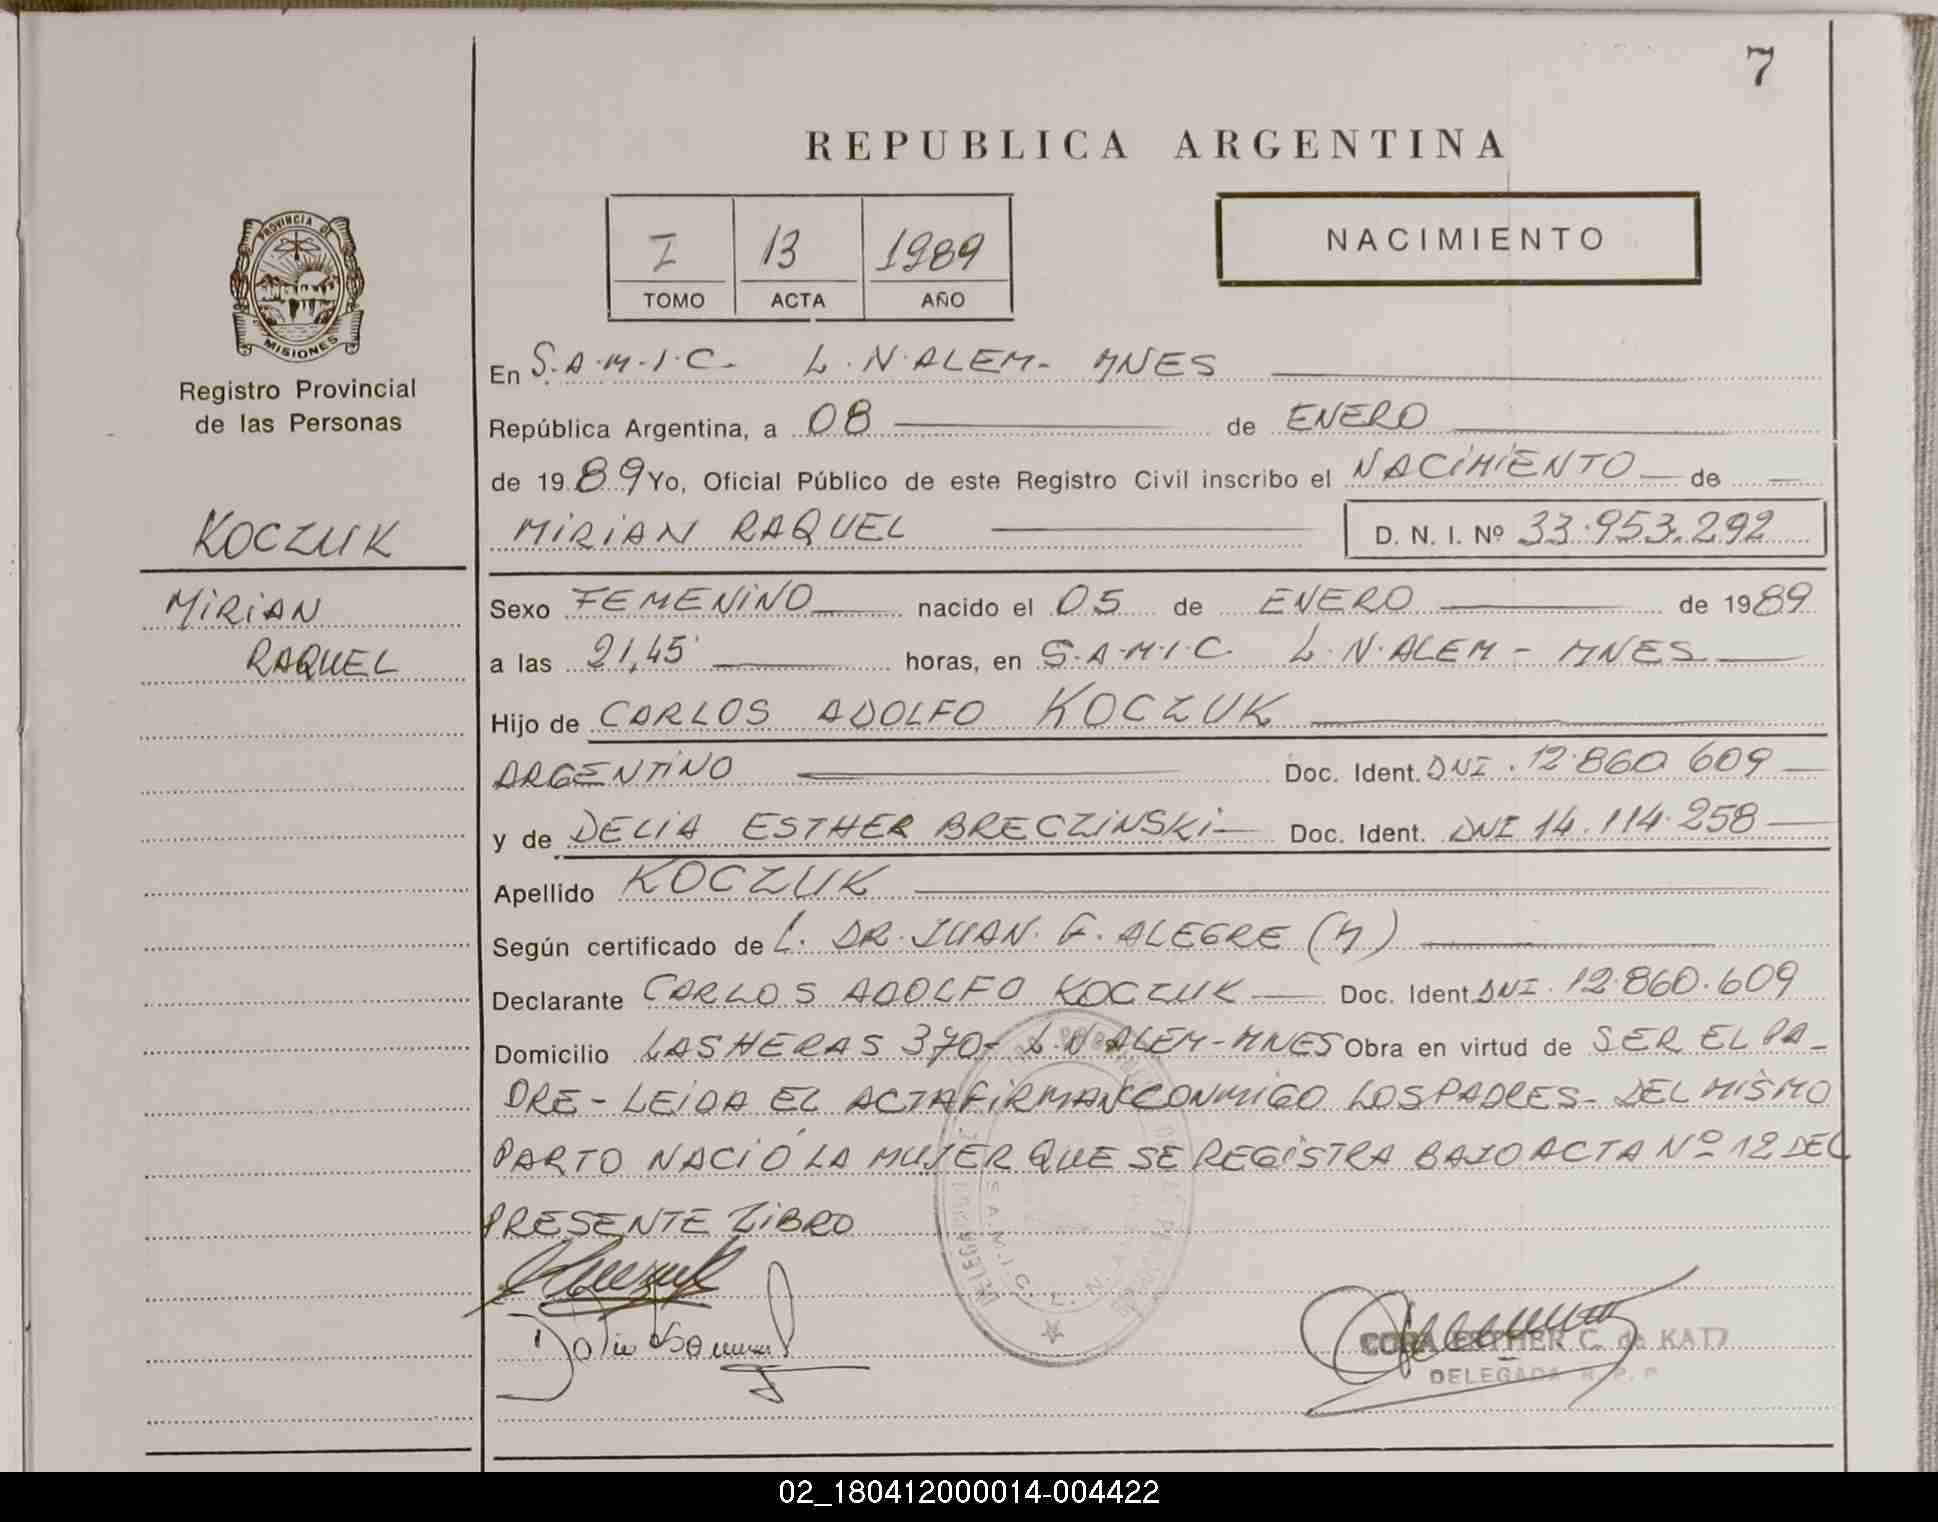 7
REPUBLICA ARGENTINA
PROVINCIA DE
MISIONES
Registro Provincial
de las Personas
I 13 1989
TOMO ACTA AÑO
NACIMIENTO
En S.A.M.I.C. L.N. ALEM- MNES
República Argentina, a 08 de ENERO
de 1989 Yo, Oficial Público de este Registro Civil inscribo el NACIMIENTO de
MIRIAN RAQUEL D. N. I. Nº 33.953.292
KOCZUK
MIRIAN
RAQUEL
Sexo FEMENINO nacido el 05 de ENERO de 1989
a las 21,45 horas, en S.A.M.I.C. L.N. ALEM - MNES
Hijo de CARLOS ADOLFO KOCZUK
ARGENTINO Doc. Ident. DNI. 12.860 609
y de DELIA ESTHER BRECZINSKI Doc. Ident. DNI 14.114.258
Apellido KOCZUK
Según certificado de L. DR. JUAN. G. ALEGRE (h)
Declarante CARLOS ADOLFO KOCZUK Doc. Ident DNI. 12.860.609
Domicilio LAS HERAS 370- L.N. ALEM-MNES Obra en virtud de SER EL PA-
DRE - LEIDA EL ACTA FIRMAN CONMIGO LOS PADRES- DEL MISMO
PARTO NACIÓ LA MUJER QUE SE REGISTRA BAJO ACTA Nº 12 DEL
PRESENTE LIBRO
S.A.M.I.C. L.N.
CORA ESTHER C. de KATZ
DELEGADA R. P. P
02_180412000014-004422